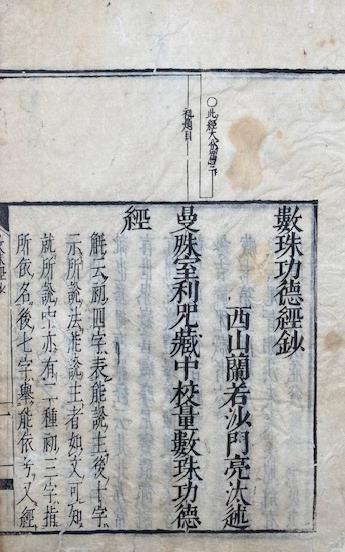 數珠功德經鈔
西山蘭若沙門亮汰述
曼殊室利咒藏中校量數珠功德
經
解云初四字表能說主後十字
示所說法能說主者如文可知
就所說中亦有二種初三字指
所依名後七字舉能依号入經
初題目